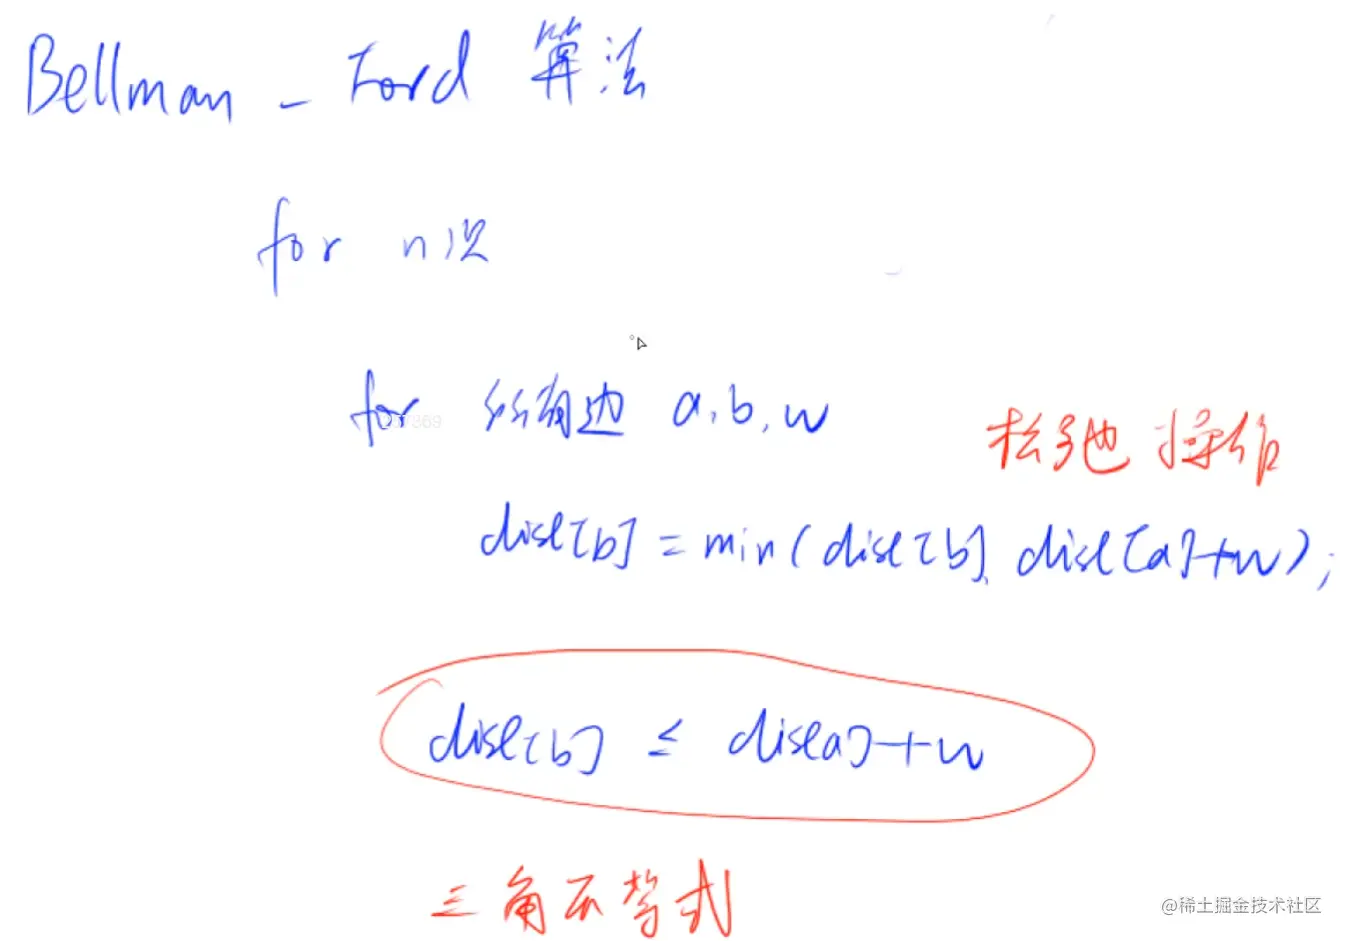 Bellman - Ford 算法
for n次
for 所有边 a,b,w
松弛操作
dist[b] = min(dist[b], dist[a]+w);
dist[b] ≤ dist[a]+w
三角不等式
@稀土掘金技术社区